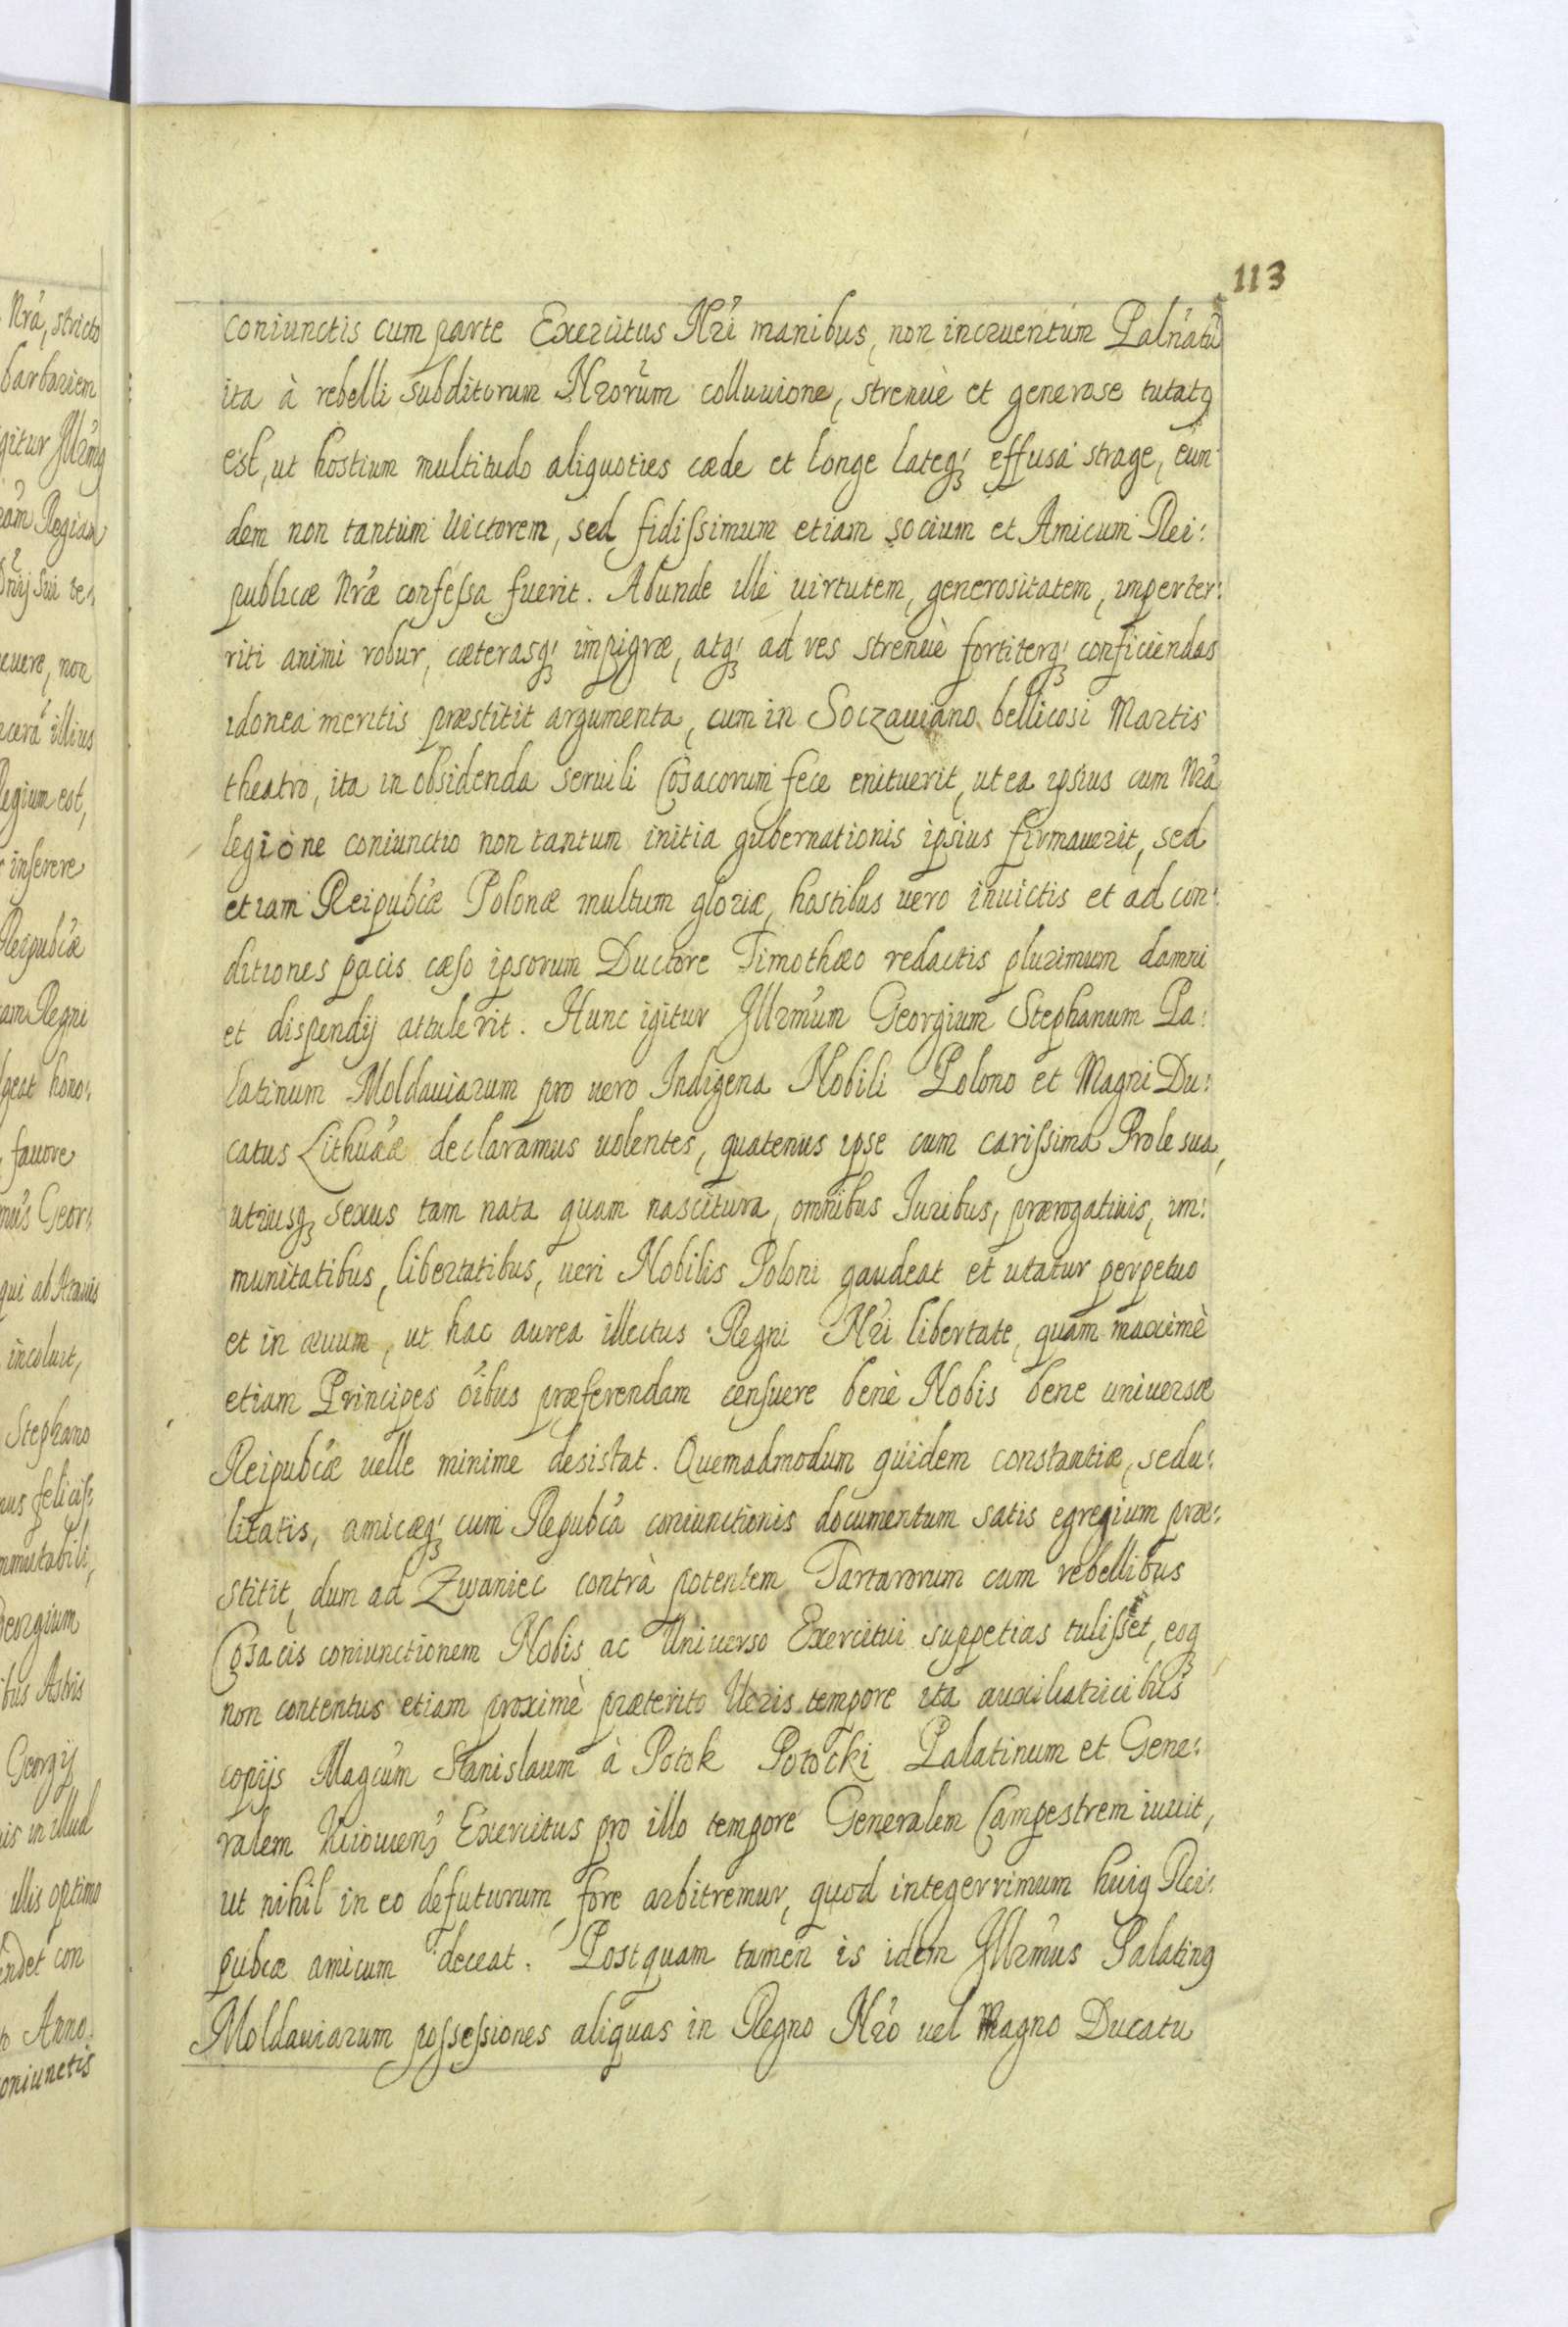 113
coniunctis cum parte Exercitus Nri manibus, non incruentum Palnatũ
ita à rebelli subditorum Nrorum colluuione, strenuè et generose tutatꝯ
est, ut hostium multitudo aliquoties cæde et longe lateqꝫ effusa strage, eun
dem non tantum uictorem, sed fidiſsimum etiam socium et Amicum Rei:
publicæ Nræ confeſsa fuerit. Abunde ille uirtutem, generositatem, imperter:
riti animi robur, cæterasqꝫ impigræ, atqꝫ ad res strenuè fortiterqꝫ conficiendas
idonea meritis præstitit argumenta, cum in Soczauiano bellicosi Martis
theatro, ita in obsidenda seruili Cosacorum fece enituerit, ut ea ipsius cum Nrã
legione coniunctio non tantum initia gubernationis ipsius firmauerit, sed
etiam Reipubcæ Polonæ multum gloriæ, hostibus uero inuictis et ad con:
ditiones pacis cæso ipsorum Ductore Timothæo redactis plurimum damni
et dispendij attulerit. Hunc igitur Jllrmum Georgium Stephanum Pa:
latinum Moldauiarum pro uero Indigena Nobili Polono et Magni Du:
catus Lithuææ declaramus uolentes, quatenus ipse cum cariſsima Prole sua,
utriusqꝫ sexus tam nata quam nascitura, omnibus Iuribus, prærogatiuis, im:
munitatibus, libertatibus, ueri Nobilis Poloni gaudeat et utatur perpetuo
et in æuum, ut hac aurea illectus Regni Nri libertate, quam maximè
etiam Principes oibus præferendam censuere benè Nobis bene uniuersæ
Reipubcæ uelle minime desistat. Quemadmodum quidem constantiæ, sedu:
litatis, amicæqꝫ cum Repubca coniunctionis documentum satis egregium præ:
stitit, dum ad Zwaniec contrà potentem Tartarorum cum rebellibus
Cosacis coniunctionem Nobis ac Uniuerso Exercitui suppetias tuliſset, eoqꝫ
non contentus etiam proximè præterito Ueris tempore ita auxiliatricibus
copijs Magcum Stanislaum à Potok Potocki Palatinum et Gene:
ralem Kiiouien, Exercitus pro illo tempore Generalem Campestrem iuuit,
ut nihil in eo defuturum fore arbitremur, quod integerrimum huiꝯ Rei:
pubcæ amicum deceat. Postquam tamen is idem Jllrmus Palatinꝯ
Moldauiarum poſseſsiones aliquas in Regno Nro uel Magno Ducatu